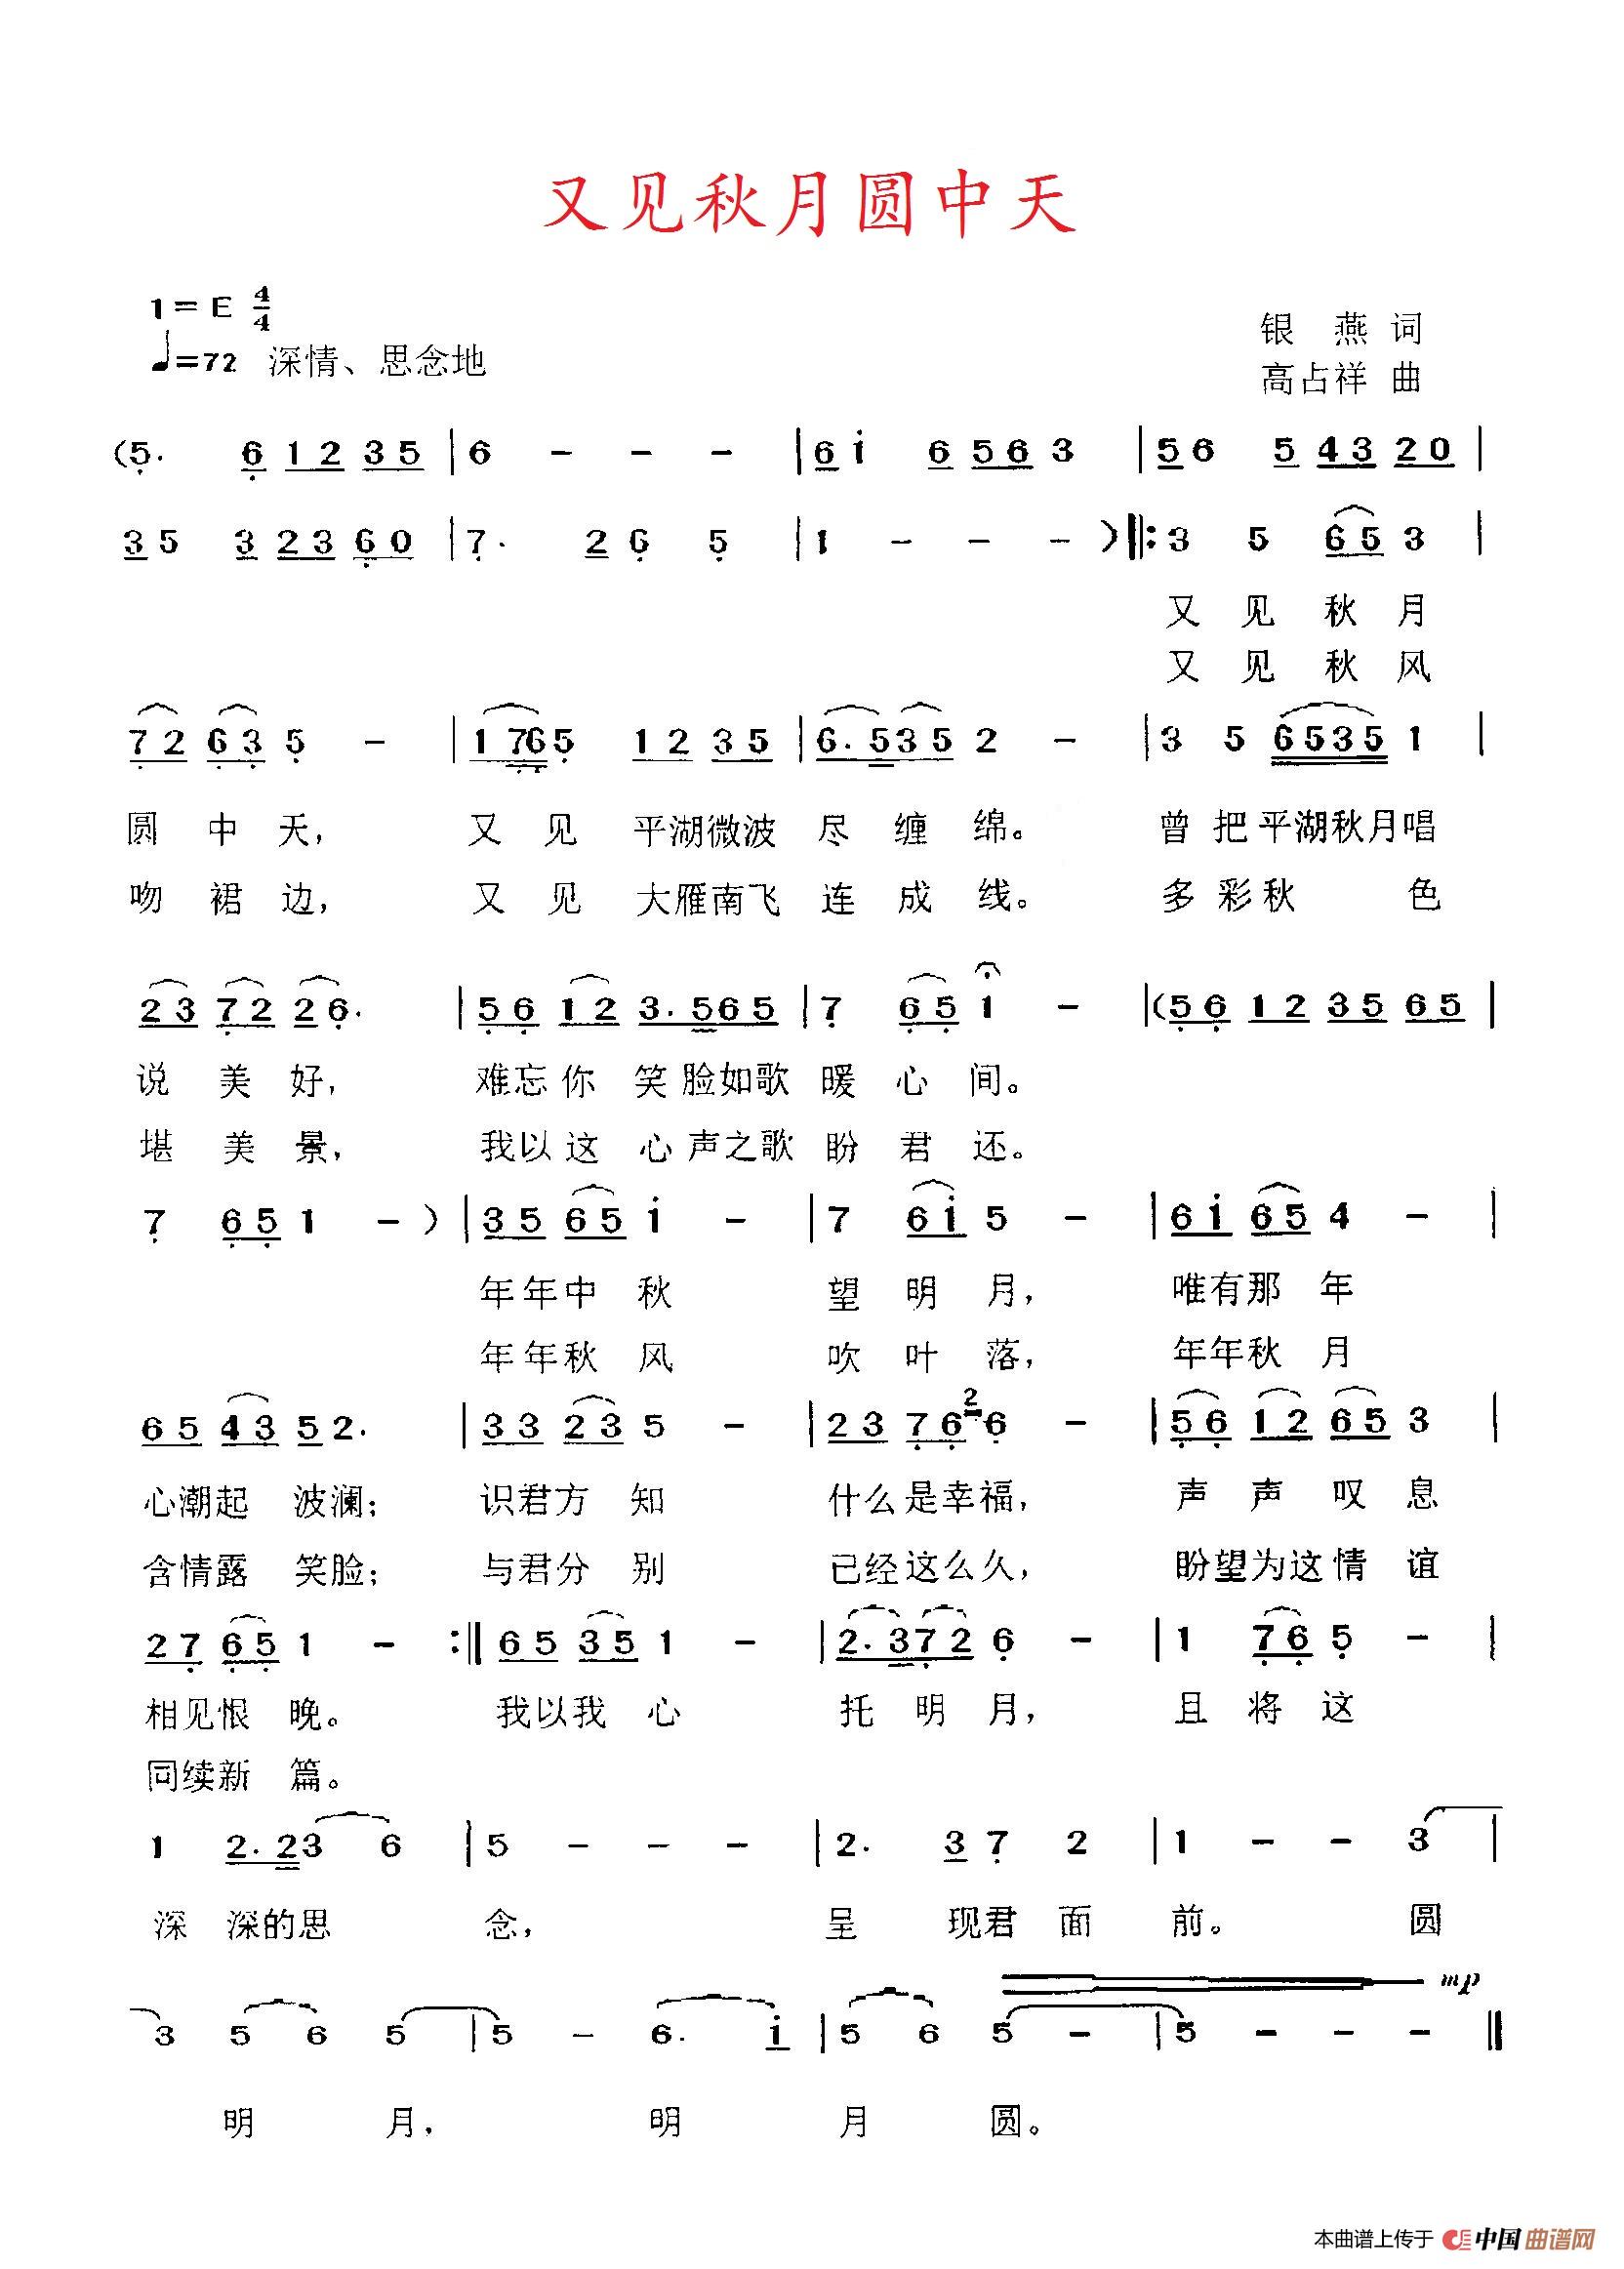 又见秋月圆中天
1=E 4/4
♩=72 深情、思念地
银 燕 词
高占祥 曲
(5. 6 1 2 3 5 | 6 - - - | 6 i 6 5 6 3 | 5 6 5 4 3 2 0 |
3 5 3 2 3 6 0 | 7. 2 6 5 | 1 - - - ) ‖: 3 5 6 5 3 |
又 见 秋 月
又 见 秋 风
7 2 6 3 5 - | 1 7 6 5 1 2 3 5 | 6. 5 3 5 2 - | 3 5 6 5 3 5 1 |
圆 中 天， 又 见 平湖微波 尽 缠 绵。 曾 把 平湖秋月唱
吻 裙 边， 又 见 大雁南飞 连 成 线。 多 彩 秋 色
2 3 7 2 2 6. | 5 6 1 2 3. 5 6 5 | 7 6 5 1 - | (5 6 1 2 3 5 6 5 |
说 美 好， 难忘你 笑 脸如歌 暖 心 间。
堪 美 景， 我以这 心 声之歌 盼 君 还。
7 6 5 1 - ) | 3 5 6 5 i - | 7 6 i 5 - | 6 i 6 5 4 - |
年年中 秋 望 明 月， 唯有那 年
年年秋 风 吹 叶 落， 年年秋 月
6 5 4 3 5 2. | 3 3 2 3 5 - | 2 3 7 6 2 6 - | 5 6 1 2 6 5 3 |
心潮起 波澜； 识君方 知 什么是幸福， 声 声 叹 息
含情露 笑脸； 与君分 别 已经这么久， 盼望为这情 谊
2 7 6 5 1 - :‖ 6 5 3 5 1 - | 2. 3 7 2 6 - | 1 7 6 5 - |
相见恨 晚。 我以我 心 托 明 月， 且 将 这
同续新 篇。
1 2. 2 3 6 | 5 - - - | 2. 3 7 2 | 1 - - 3 |
深 深的思 念， 呈 现君 面 前。 圆
mp
3 5 6 5 | 5 - 6. i | 5 6 5 - | 5 - - - ‖
明 月， 明 月 圆。
本曲谱上传于 中国曲谱网